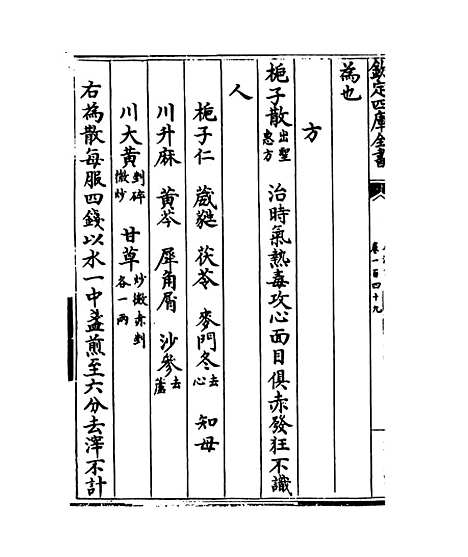 欽定四庫全書
卷一百四十九
為也
方
梔子散出聖惠方 治時氣熱毒攻心面目俱赤發狂不識
人
梔子仁 葳蕤 茯苓 麥門冬去心 知母
川升麻 黃芩 犀角屑 沙參去蘆
川大黃剉碎微炒 甘草炒微赤剉各一兩
右為散每服四錢以水一中盞煎至六分去滓不計